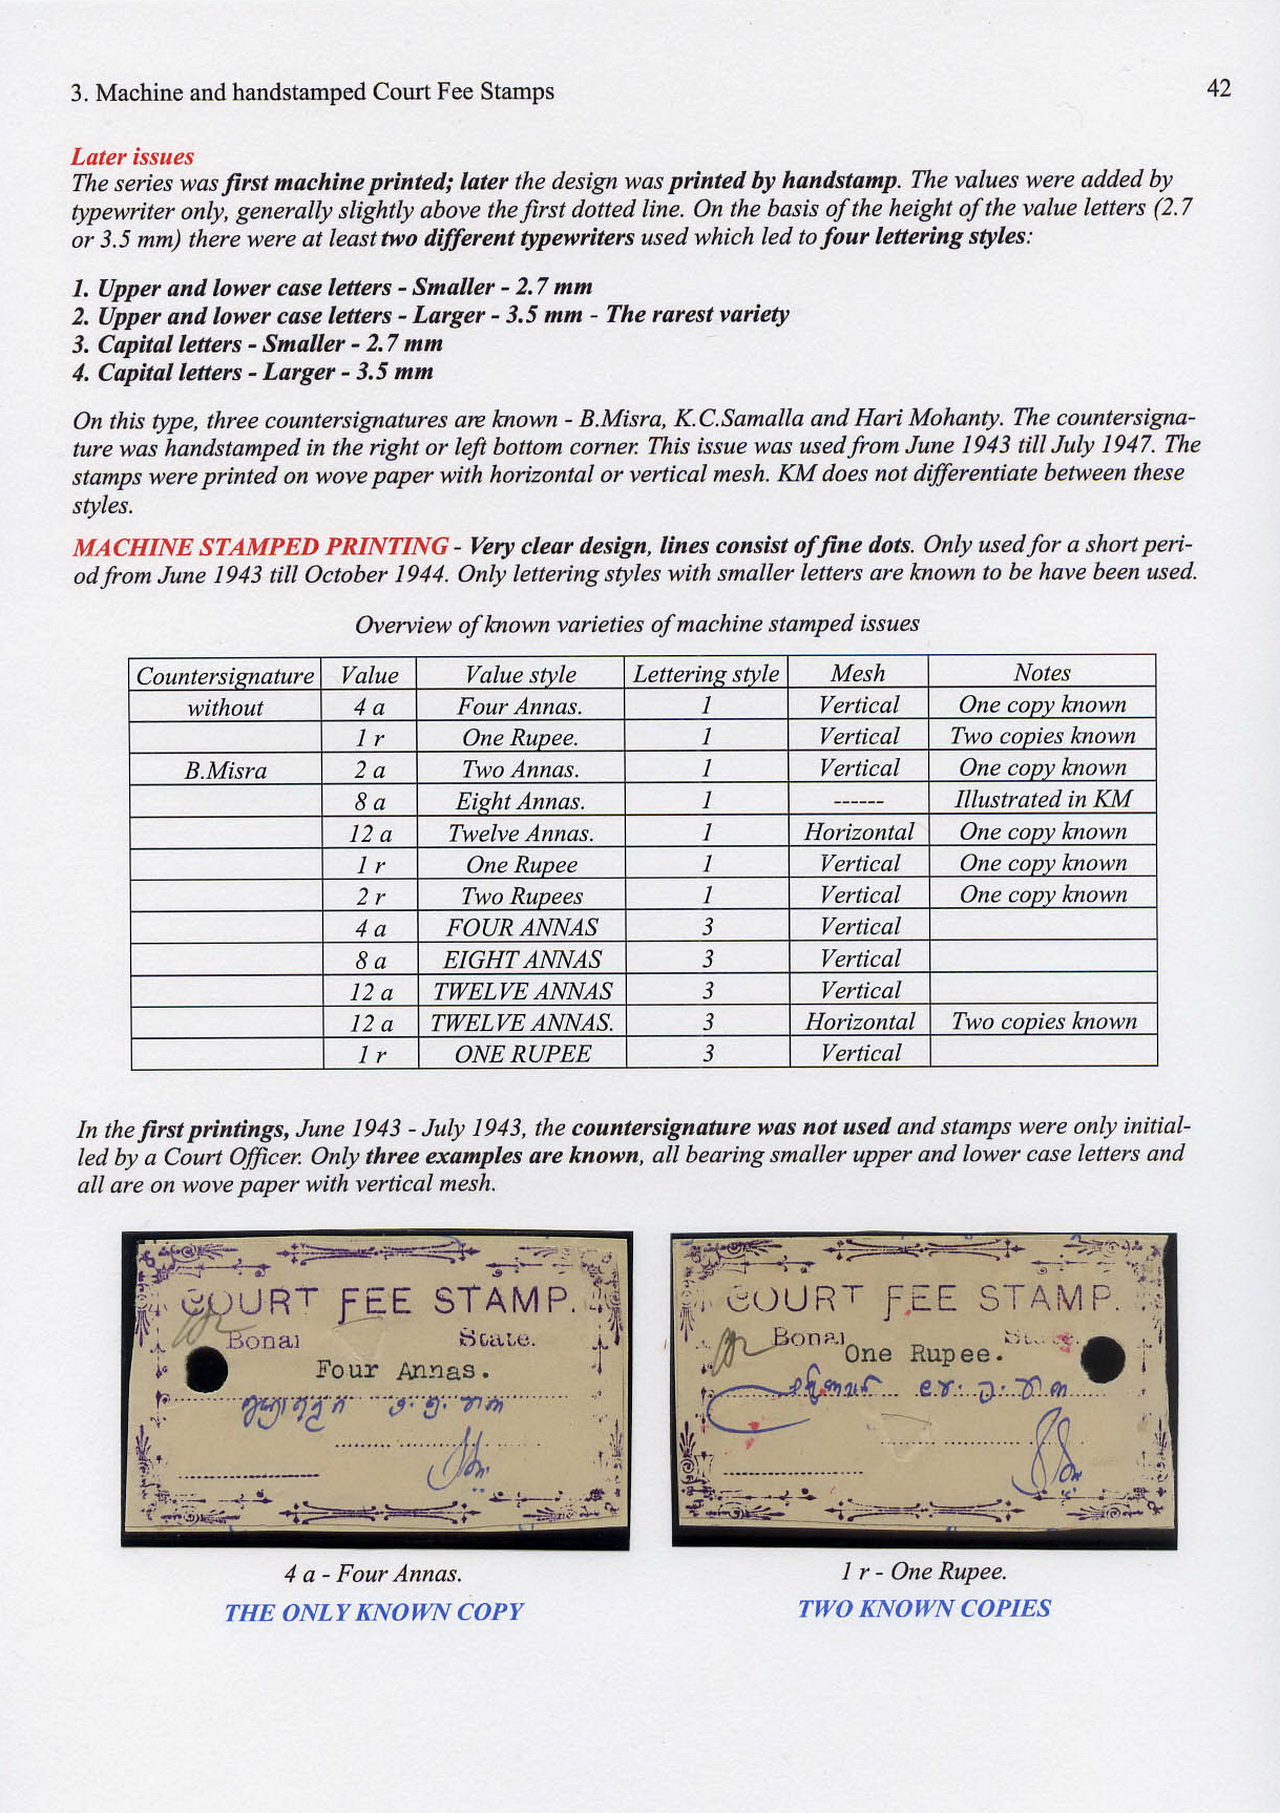 3. Machine and handstamped Court Fee Stamps
42
Later issues
The series was first machine printed; later the design was printed by handstamp. The values were added by
typewriter only, generally slightly above the first dotted line. On the basis of the height of the value letters (2.7
or 3.5 mm) there were at least two different typewriters used which led to four lettering styles:
1. Upper and lower case letters - Smaller - 2.7 mm
2. Upper and lower case letters - Larger - 3.5 mm - The rarest variety
3. Capital letters - Smaller - 2.7 mm
4. Capital letters - Larger - 3.5 mm
On this type, three countersignatures are known - B.Misra, K.C.Samalla and Hari Mohanty. The countersigna-
ture was handstamped in the right or left bottom corner. This issue was used from June 1943 till July 1947. The
stamps were printed on wove paper with horizontal or vertical mesh. KM does not differentiate between these
styles.
MACHINE STAMPED PRINTING - Very clear design, lines consist of fine dots. Only used for a short peri-
od from June 1943 till October 1944. Only lettering styles with smaller letters are known to be have been used.
Overview of known varieties of machine stamped issues
Countersignature Value Value style Lettering style Mesh Notes
without 4 a Four Annas. 1 Vertical One copy known
1 r One Rupee. 1 Vertical Two copies known
B.Misra 2 a Two Annas. 1 Vertical One copy known
8 a Eight Annas. 1 ------ Illustrated in KM
12 a Twelve Annas. 1 Horizontal One copy known
1 r One Rupee 1 Vertical One copy known
2 r Two Rupees 1 Vertical One copy known
4 a FOUR ANNAS 3 Vertical
8 a EIGHT ANNAS 3 Vertical
12 a TWELVE ANNAS 3 Vertical
12 a TWELVE ANNAS. 3 Horizontal Two copies known
1 r ONE RUPEE 3 Vertical
In the first printings, June 1943 - July 1943, the countersignature was not used and stamps were only initial-
led by a Court Officer. Only three examples are known, all bearing smaller upper and lower case letters and
all are on wove paper with vertical mesh.
COURT FEE STAMP.
Bonai State.
Four Annas.
COURT FEE STAMP.
Bonai State.
One Rupee.
4 a - Four Annas.
THE ONLY KNOWN COPY
1 r - One Rupee.
TWO KNOWN COPIES